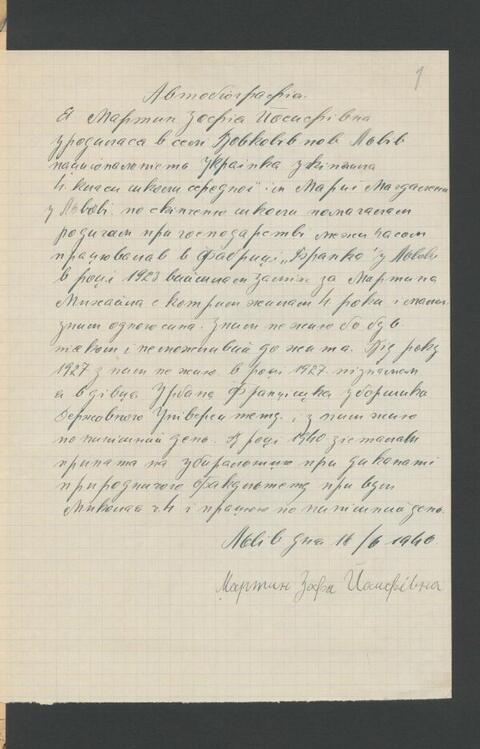 1
Автобіографія.
Я Мартин Зофія Йосифівна
уродилася в селі Вовків пов Львів
національність Українка укінчила
4 класи школи середної ім Марії Магдалени
у Львові по скінченю школи помагалам
родичам при господарстві межи часом
працювалав в фабриці „Бранка" у Львові
в році 1923 вийшлам заміж за Мартина
Михайла с котрим жилам 4 роки і мала
зним одного сина. Зним не жию бо був
і неможливий до жита. Від року
1927 з ним не жию. в році 1927. пізналам
я вдівца Урбана Францішка уборщика
Державного Університету. і з ним жию
по нинішний день. В році 1940 зісталам
принята на убиральницю при деканаті
природничого факультету при вул
Миколая ч4 і працюю по нинішний день.
Львів дня 16/6 1940.
Мартин Зофія Йосифівна